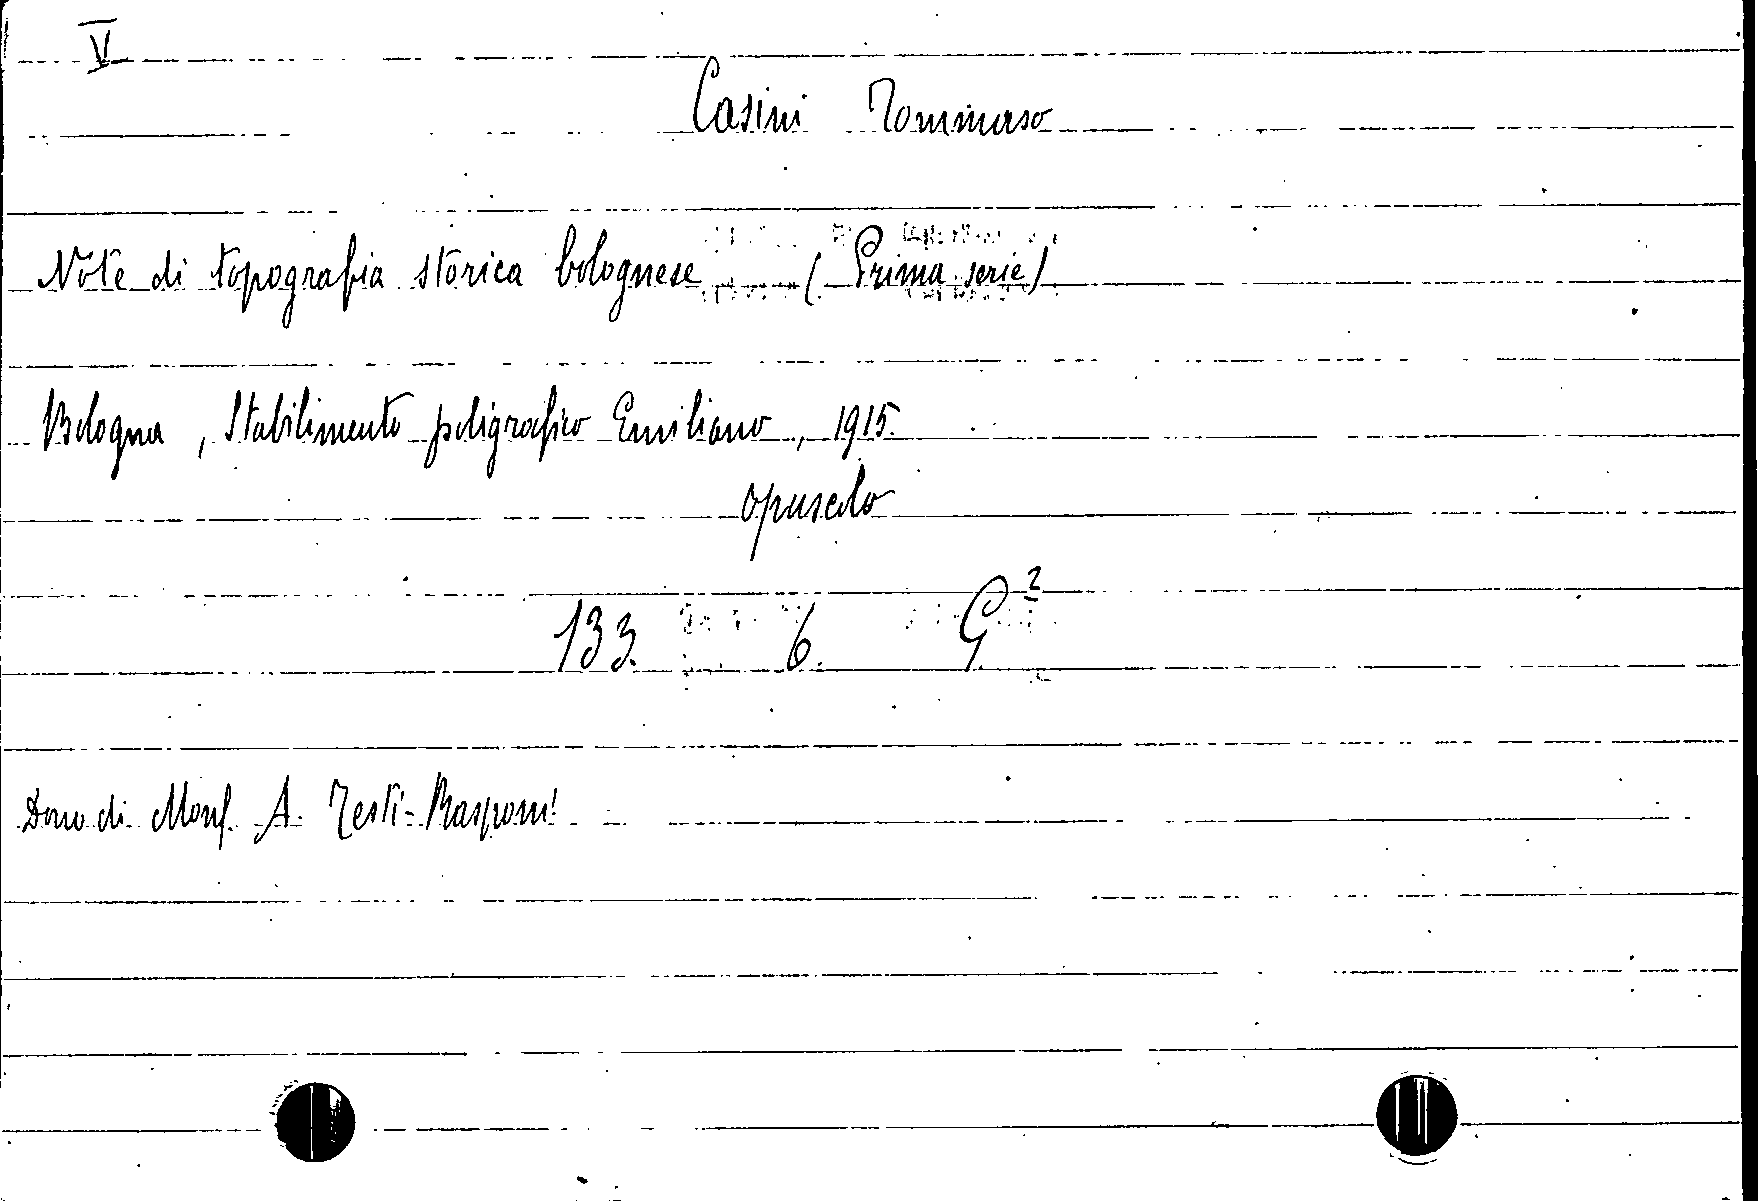 V
Casini Tommaso
Note di topografia storica bolognese (Prima serie)
Bologna, Stabilimento poligrafico Emiliano, 1915.
opuscolo
133. 6. G²
Dono di Mons. A. Testi-Rasponi